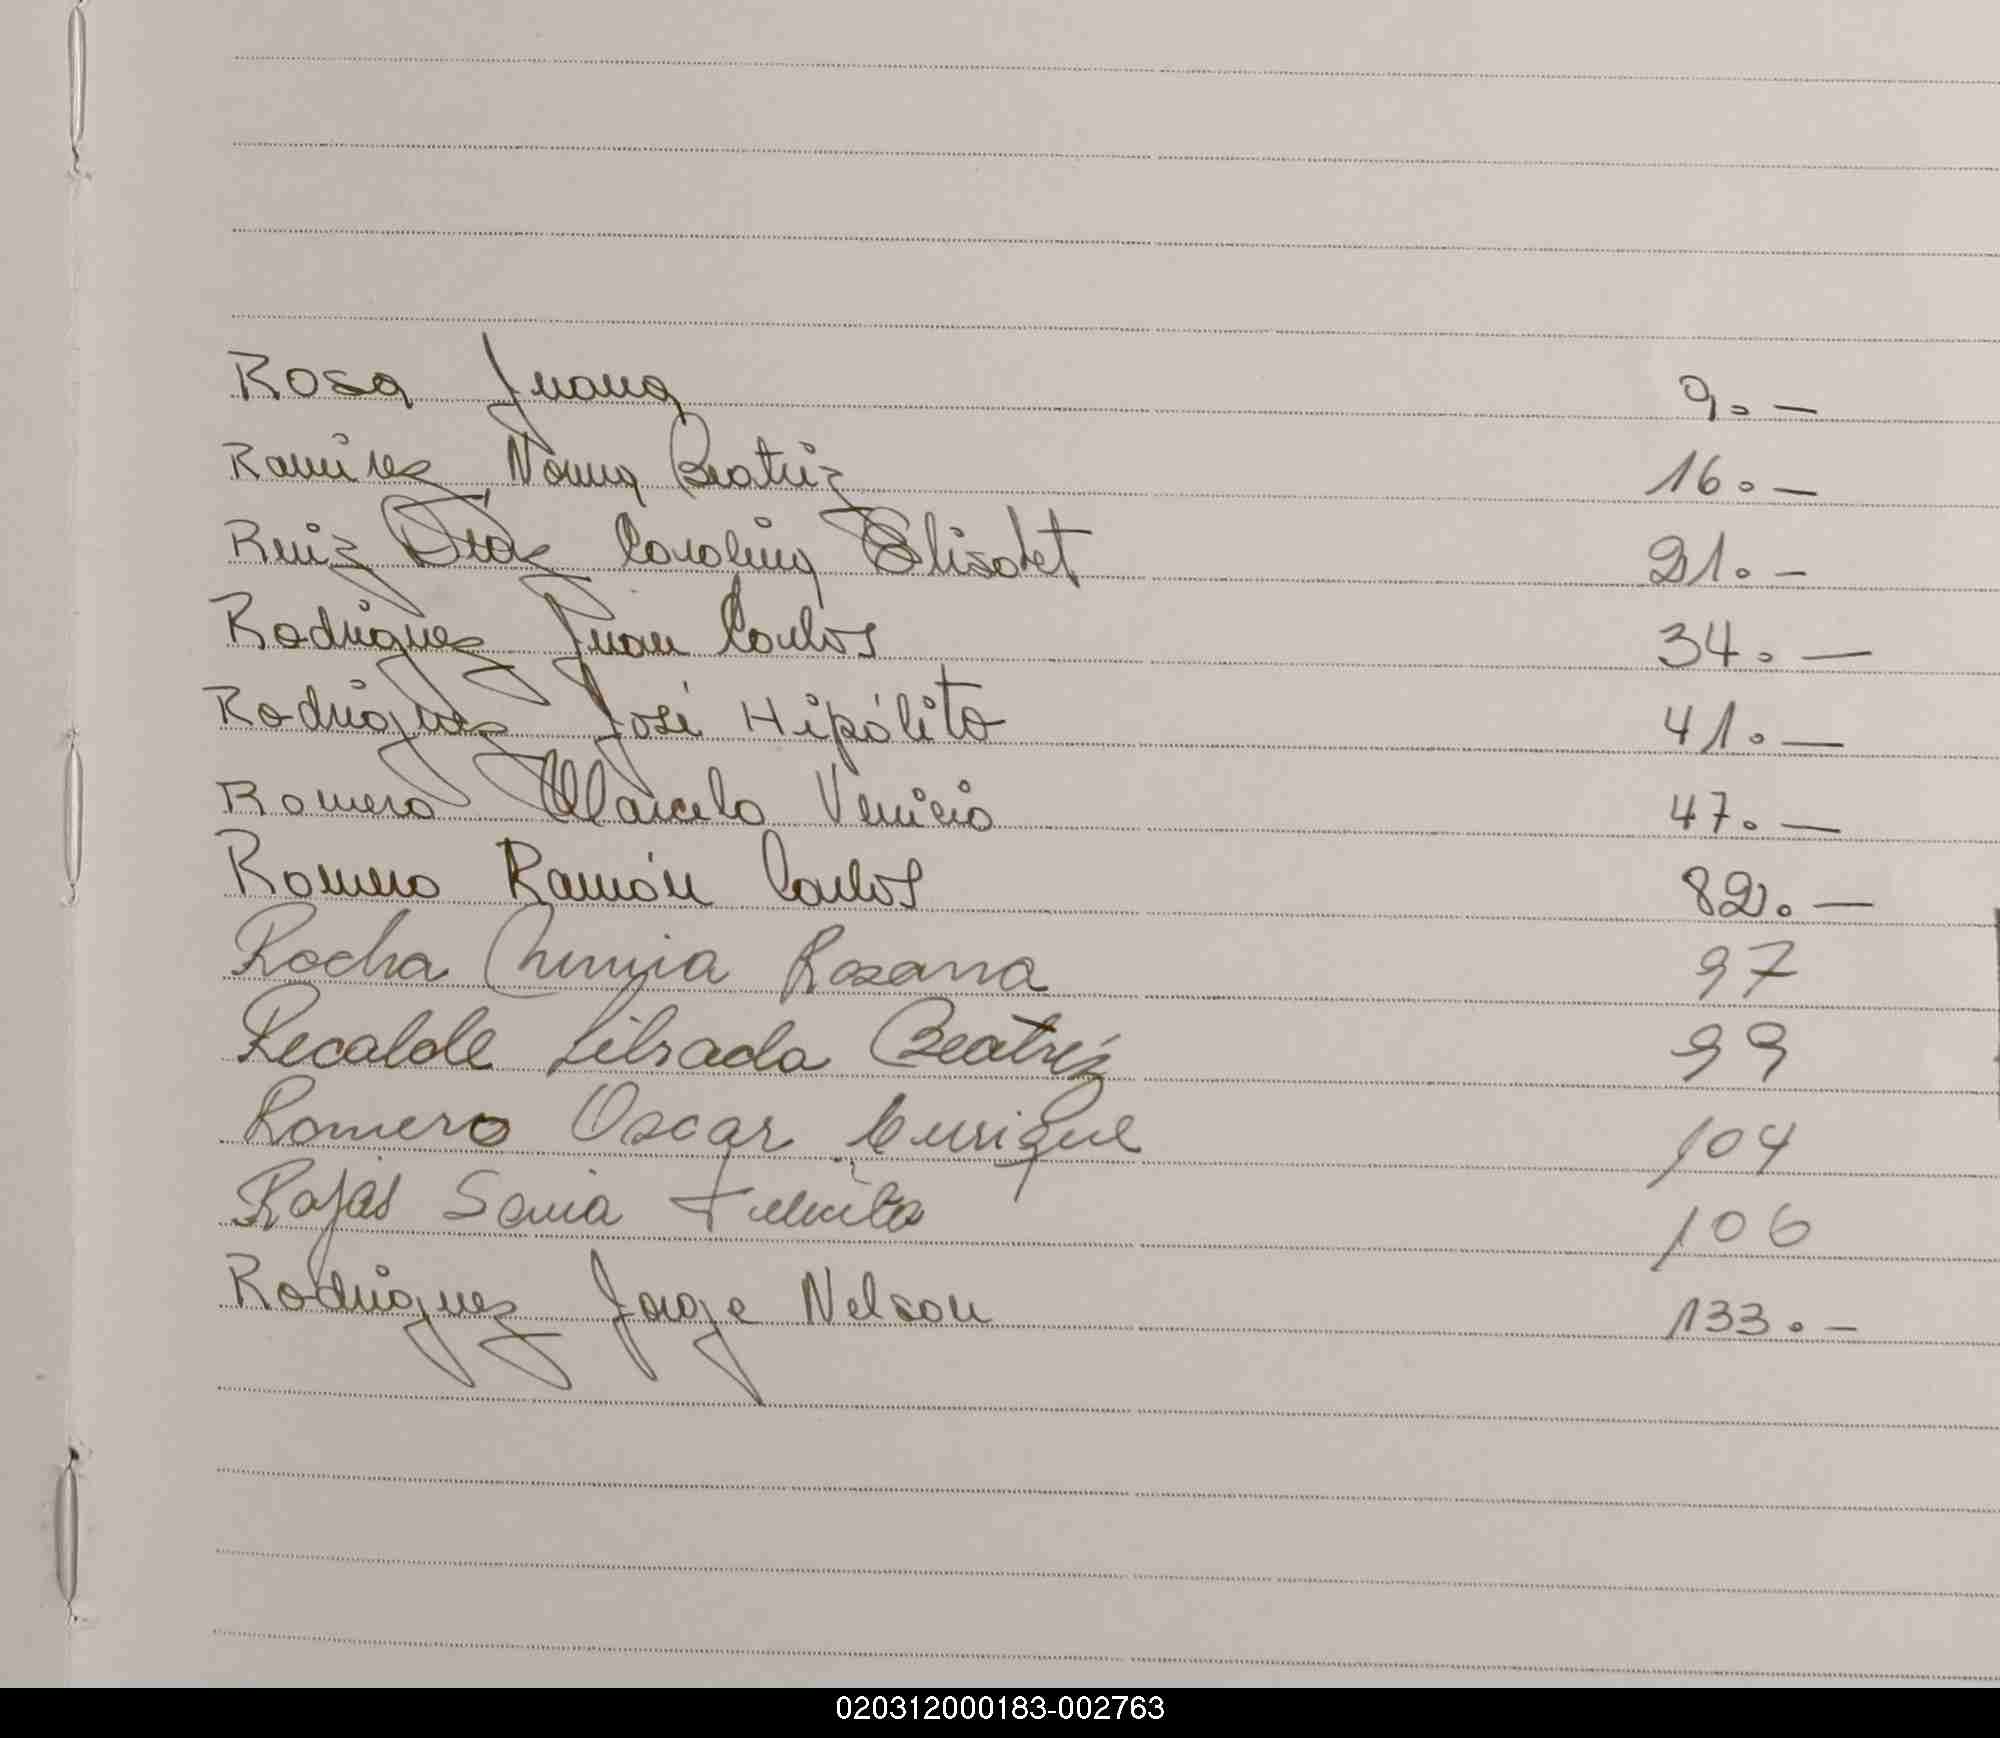 Rosa Juana 9.-
Ramirez Norma Beatriz 16.-
Ruiz Díaz Carolina Elisabet 21.-
Rodriguez Juan Carlos 34.-
Rodriguez José Hipólito 41.-
Romero Marcelo Venicio 47.-
Romero Ramón Carlos 82.-
Rocha Rosana 97
Recalde Librada Beatriz 99
Romero Oscar Enrique 104
Rojas Sonia 106
Rodriguez Jorge Nelson 133.-
020312000183-002763